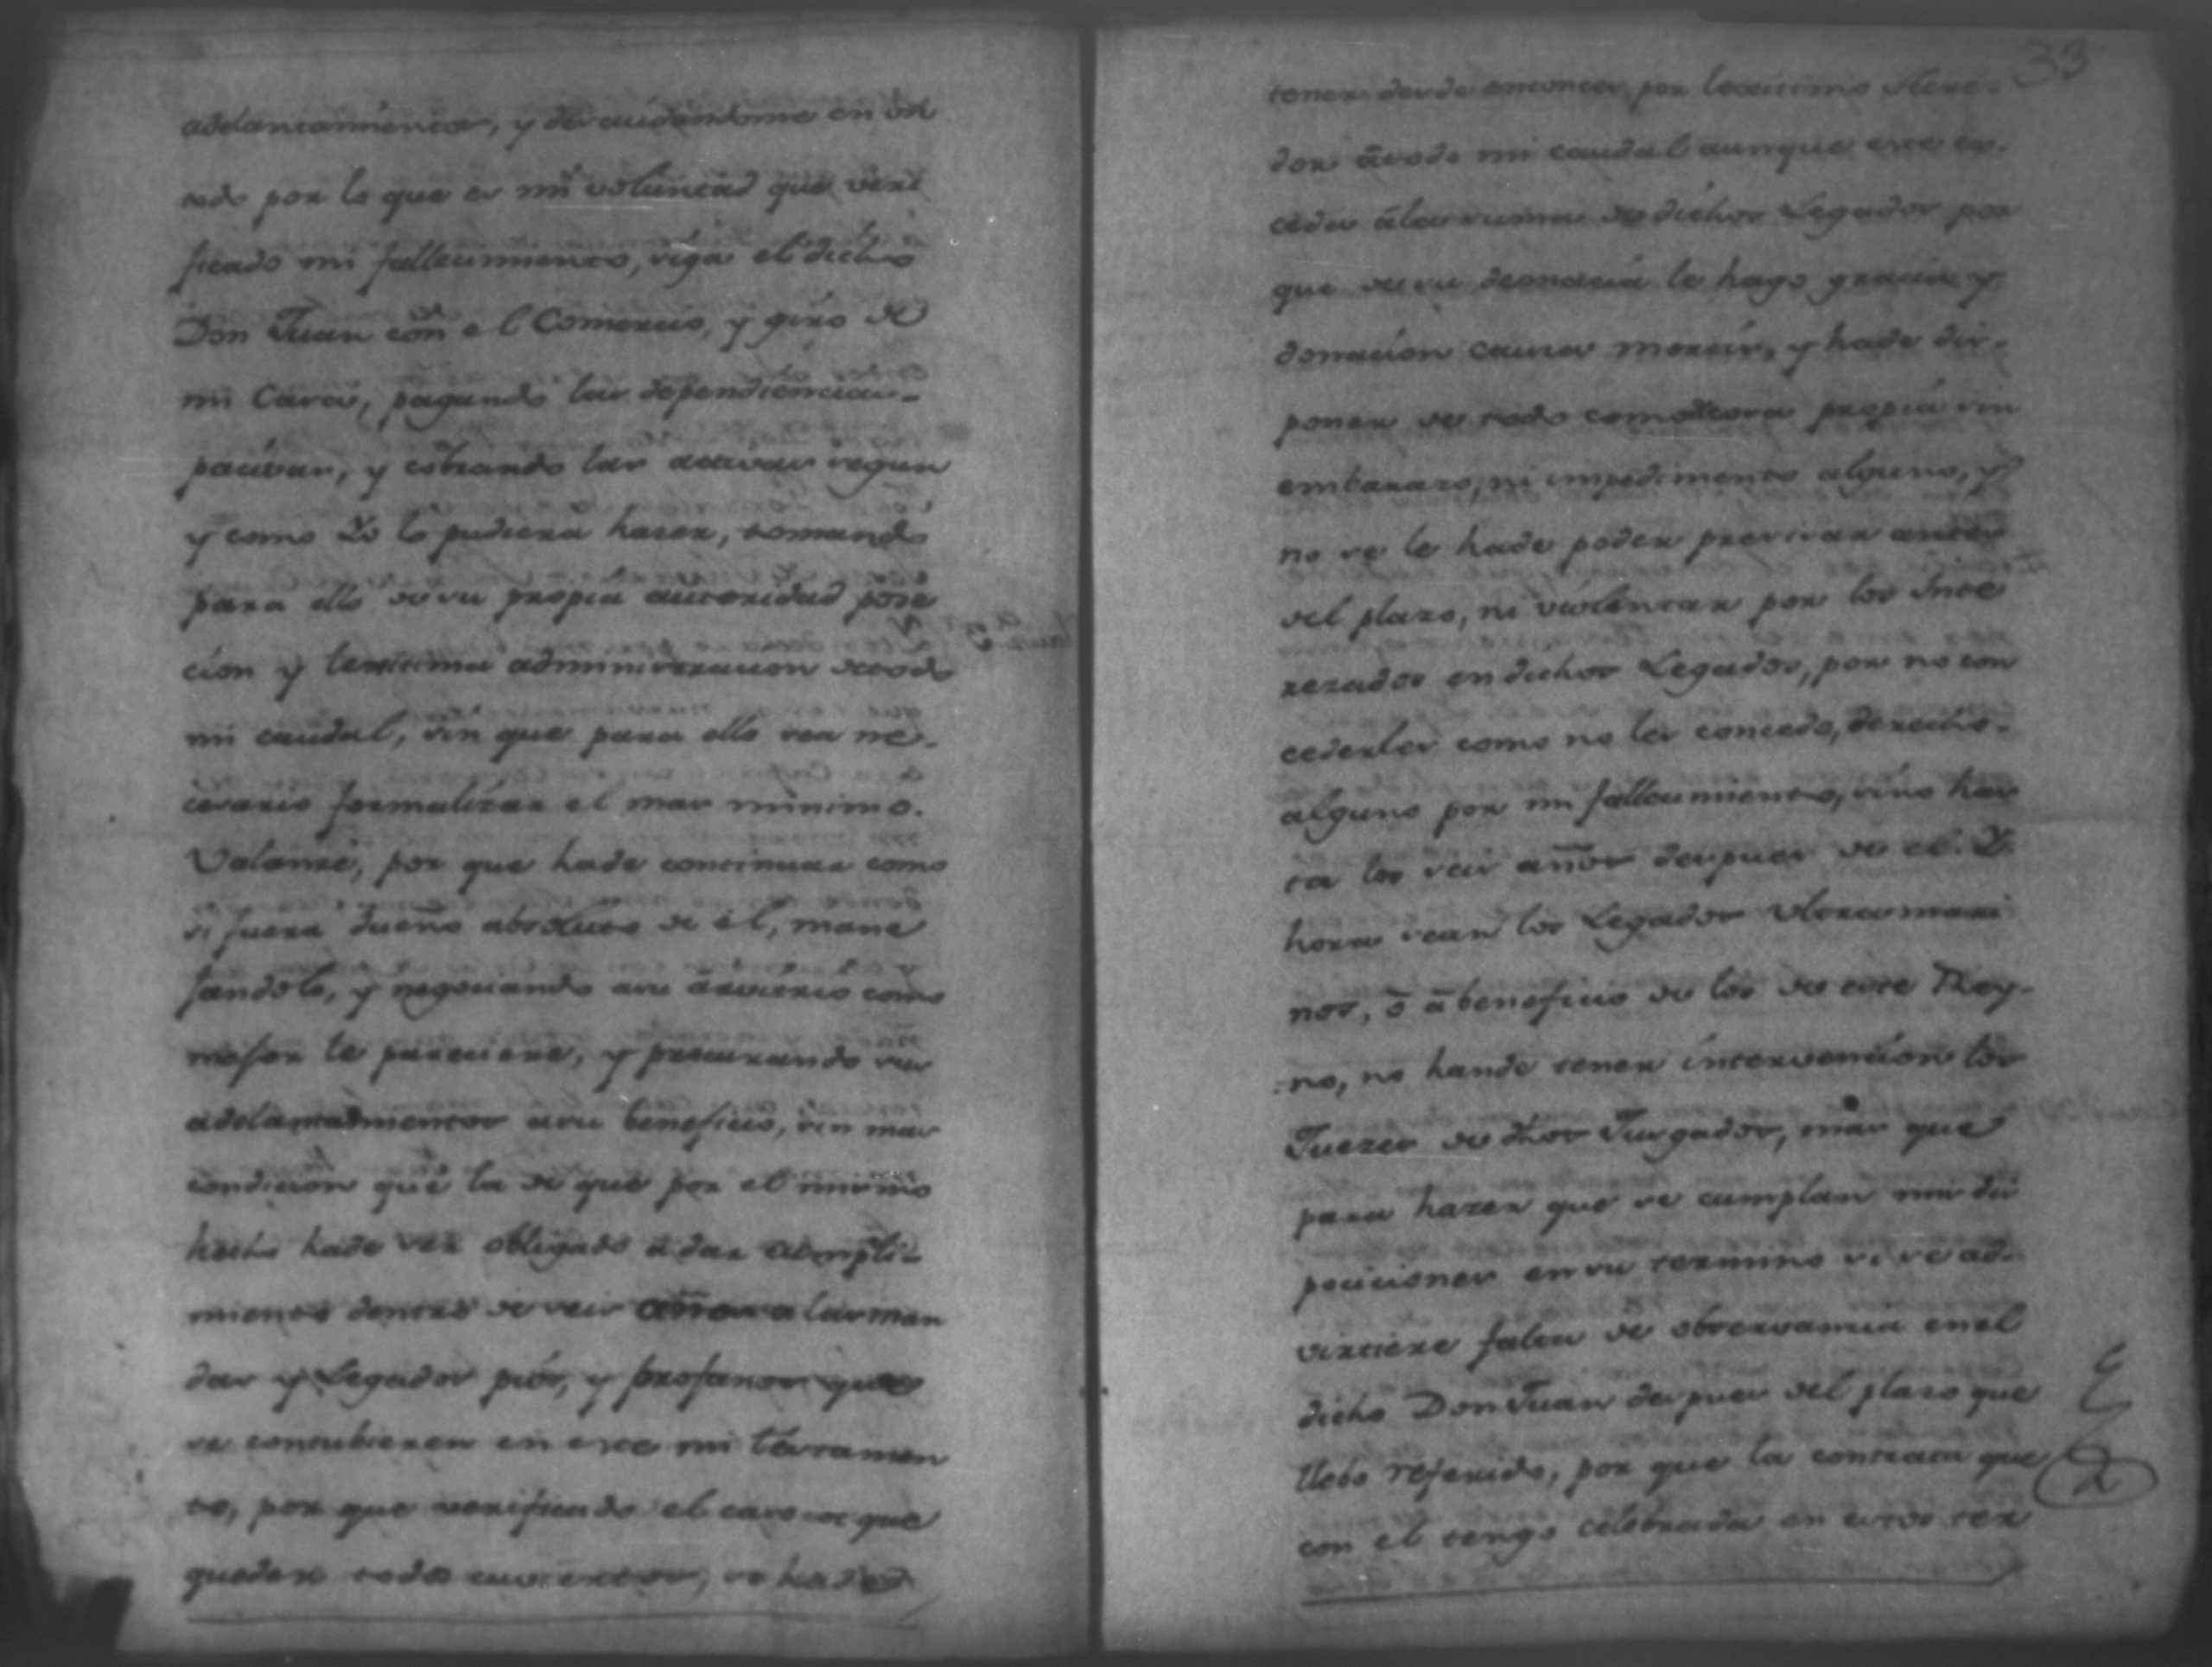 adelantamientos, y descuidandome en un
todo por lo que es mi voluntad que veri
ficado mi fallecimiento, siga el dicho
Don Juan con el Comercio, y giro de
mi Casa, pagando las dependiencias
pasivas, y cobrando las activas segun
y como Yo lo pudiera hazer, tomando
para ello de su propia autoridad pose
cion y lexitima administracion de todo
mi caudal, sin que para ello sea ne-
cesario formalizar el mas minimo
Valanze, por que hade continuar como
si fuera dueño absoluto de él, mane
jandolo, y negociando a su ârvitrio como
mejor le pareciere, y procurando sus
adelantadmientos a su beneficio, sin mas
condicion que la de que por el mismo
hecho hade ser obligado a dar cumpli-
miento dentro de seis años a las man
das y Legados pios, y profanos que
se contubieren en este mi testamen
to, por que verificado el caso de que
queden todos cuviertos, se hade
33
tener desde entonces por lexitimo Here-
dor âtodo mi caudal aunque este ex-
ceda âla suma de dichos Legados por
que de su demasia le hago gracia y
donacion causa mortis, y hade dis-
poner de todo como cosa propia sin
embarazo, ni impedimento alguno, y
no se le hade poder precisar antes
del plazo, ni violentar por los Inte
rezados en dichos Legados, por no con
cederles como no les concedo, derecho
alguno por mi fallecimiento, sino has
ta los seis años despues de el. Y
hora sean los Legados Ultramari
nos, ô â beneficio de los de este Rey-
no, no hande tener intervencion los
Juezes de dhos Juzgados, mas que
para hazer que se cumplan mis dis
pociciones en su termino si se ad-
virtiere falta de observancia en el
dicho Don Juan despues del plazo que
llebo referido, por que la contrata que
con el tengo celebrada en estos ter
2